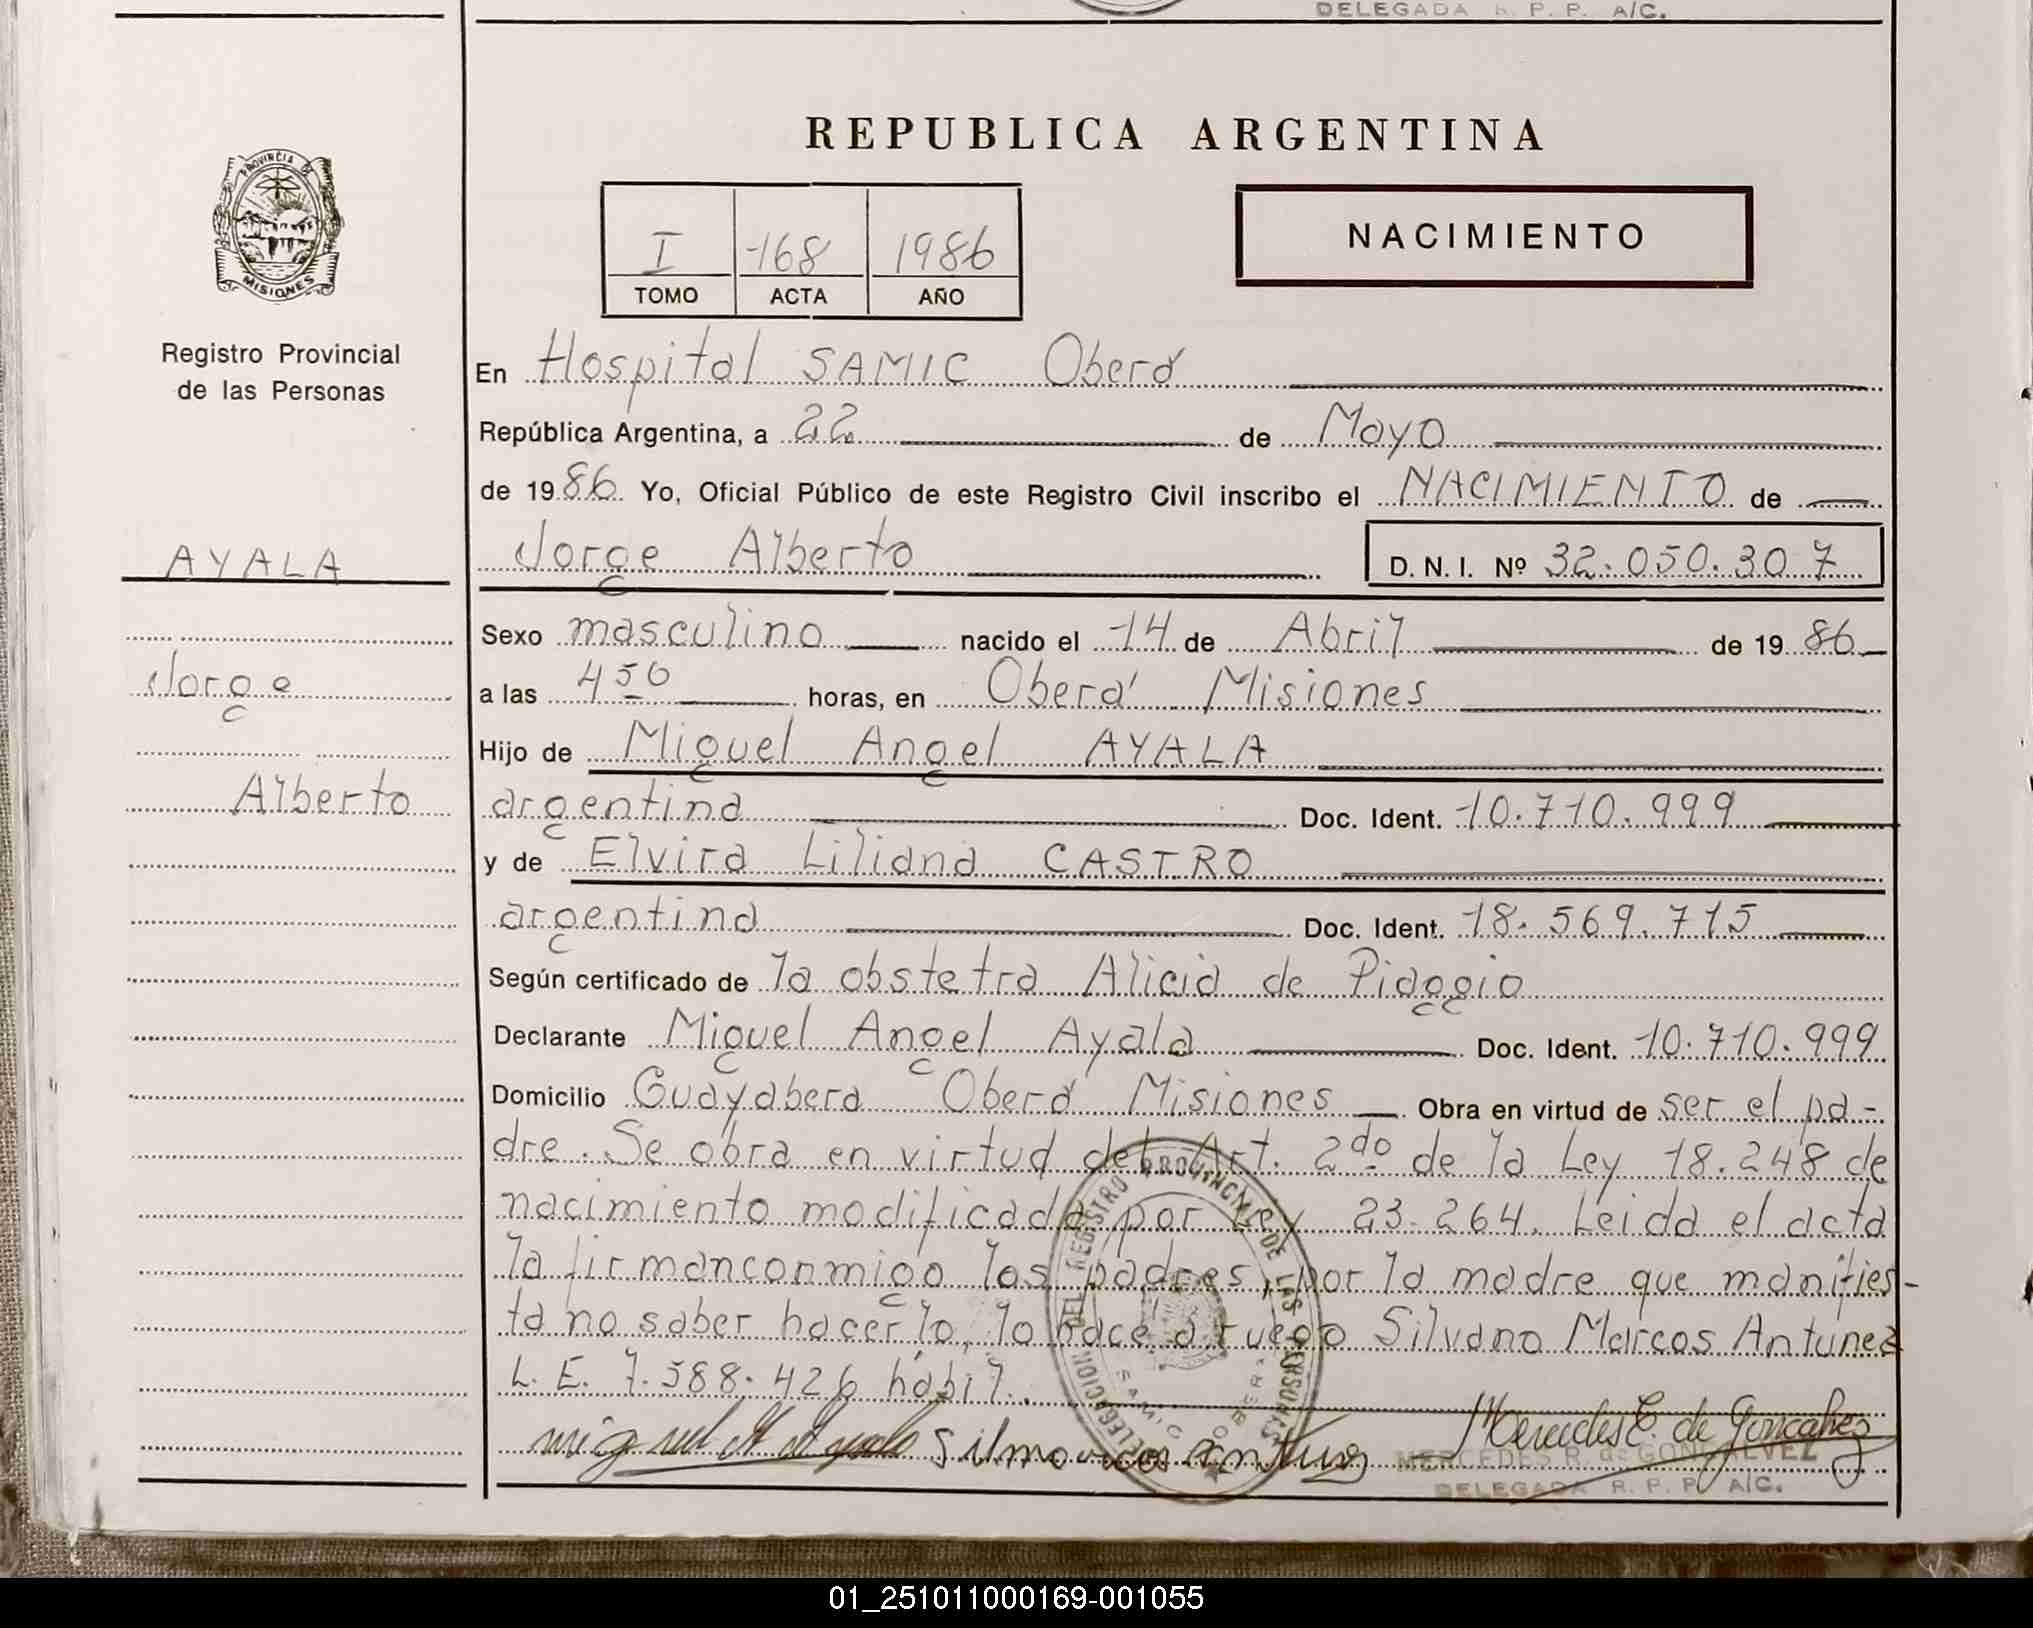 DELEGADA R. P. P. A/C.
PROVINCIA DE
MISIONES
Registro Provincial
de las Personas
AYALA
Jorge
Alberto
REPUBLICA ARGENTINA
I 168 1986
TOMO ACTA AÑO
NACIMIENTO
En Hospital SAMIC Oberá
República Argentina, a 22 de Mayo
de 1986 Yo, Oficial Público de este Registro Civil inscribo el NACIMIENTO de
Jorge Alberto D. N. I. Nº 32.050.307
Sexo masculino nacido el 14 de Abril de 1986
a las 450 horas, en Oberá Misiones
Hijo de Miguel Angel AYALA
argentina Doc. Ident. 10.710.999
y de Elvira Liliana CASTRO
argentina Doc. Ident. 18.569.715
Según certificado de la obstetra Alicia de Piaggio
Declarante Miguel Angel Ayala Doc. Ident. 10.710.999
Domicilio Guayabera Oberá Misiones Obra en virtud de ser el pa-
dre. Se obra en virtud del Art. 2do de la Ley 18.248 de
nacimiento modificada por Ley 23.264. Leida el acta
la firmanconmigo los padres, por la madre que manifies-
ta no saber hacerlo, lo hace a ruego Silvano Marcos Antunez
L. E. 7.588.426 hábil.
DELEGACION DEL REGISTRO PROVINCIAL DE LAS PERSONAS
SAMIC OBERA
Miguel A Ayala
Mercedes R. de Goncalvez
MERCEDES R. de GONCALVEZ
DELEGADA R. P. P. A/C.
01_251011000169-001055